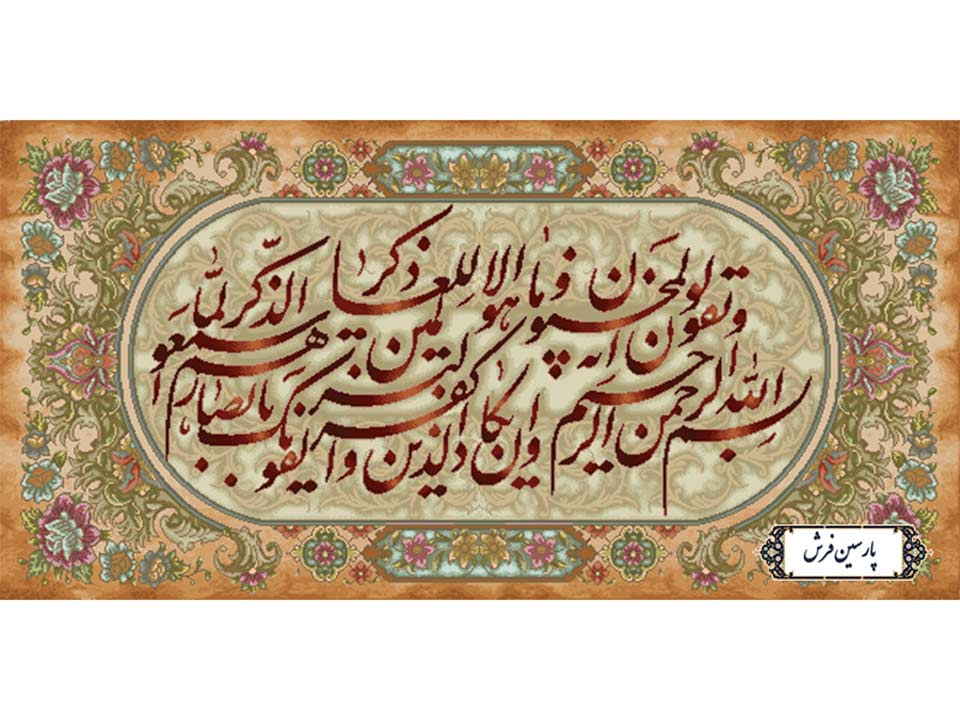 بسم الله الرحمن الرحیم
وان یکاد الذین کفروا لیزلقونک بابصارهم
لما سمعوا الذکر
ویقولون انه لمجنون
وما هو الا ذکر للعالمین
پارسین فرش